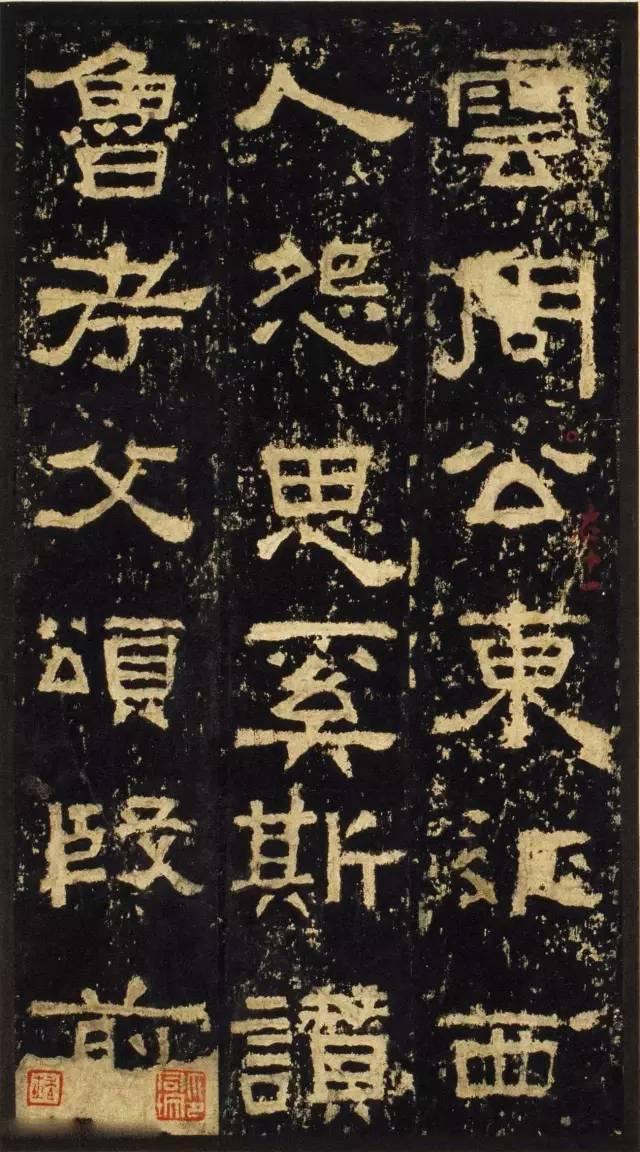 雲周公東征西
人怨思奚斯讃
魯孝父頌殷前